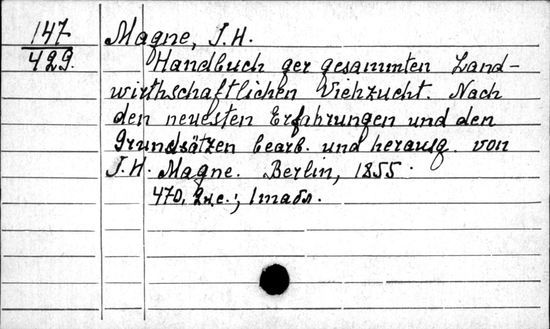 147
429.
Magne, J. H.
Handbuch ger gesammten Land-
wirthschaftlichen Viehzucht. Nach
den neuesten Erfahrungen und den
Grundsätzen bearb. und herausg. von
J. H. Magne. Berlin, 1855.
470, 2 н.с.; 1 табл.